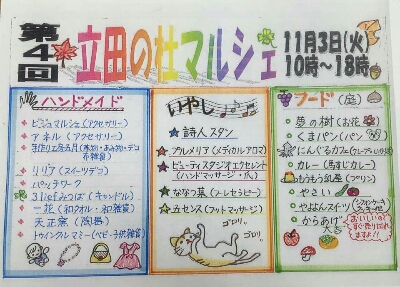 第4回
立田の杜マルシェ
11月3日(火)
10時〜18時
ハンドメイド
ビジュマルシェ(アクセサリー)
アネル(アクセサリー)
リリア(スイーツデコ)
パッチワーク
31iefみつば(キャンドル)
一花(和タオル・和雑貨)
天正窯(陶器)
トゥインクルマミー(ベビー・子供雑貨)
いやし
詩人スタン
プルメリア(メディカルアロマ)
ビューティスタジオエクセレント
(ハンドマッサージ・爪)
ななつ葉(フレセラピー)
立センス(フットマッサージ)
ゴロリ
ゴロリ
フード(庭)
夢の樹(お花)
くまパン(パン)
にんぐるカフェ
カレー(馬すじカレー)
もうもう乳屋(プリン)
やさい
やよよんスイーツ
からあげ
大吉
おいしいので
すぐ売り切れ
ますよ!!